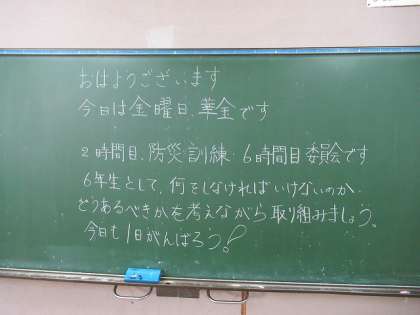 おはようございます
今日は金曜日、華金です
2時間目、防災訓練・6時間目委員会です
6年生として、何をしなければいけないのか、
どうあるべきかを考えながら取り組みましょう。
今日も1日がんばろう!